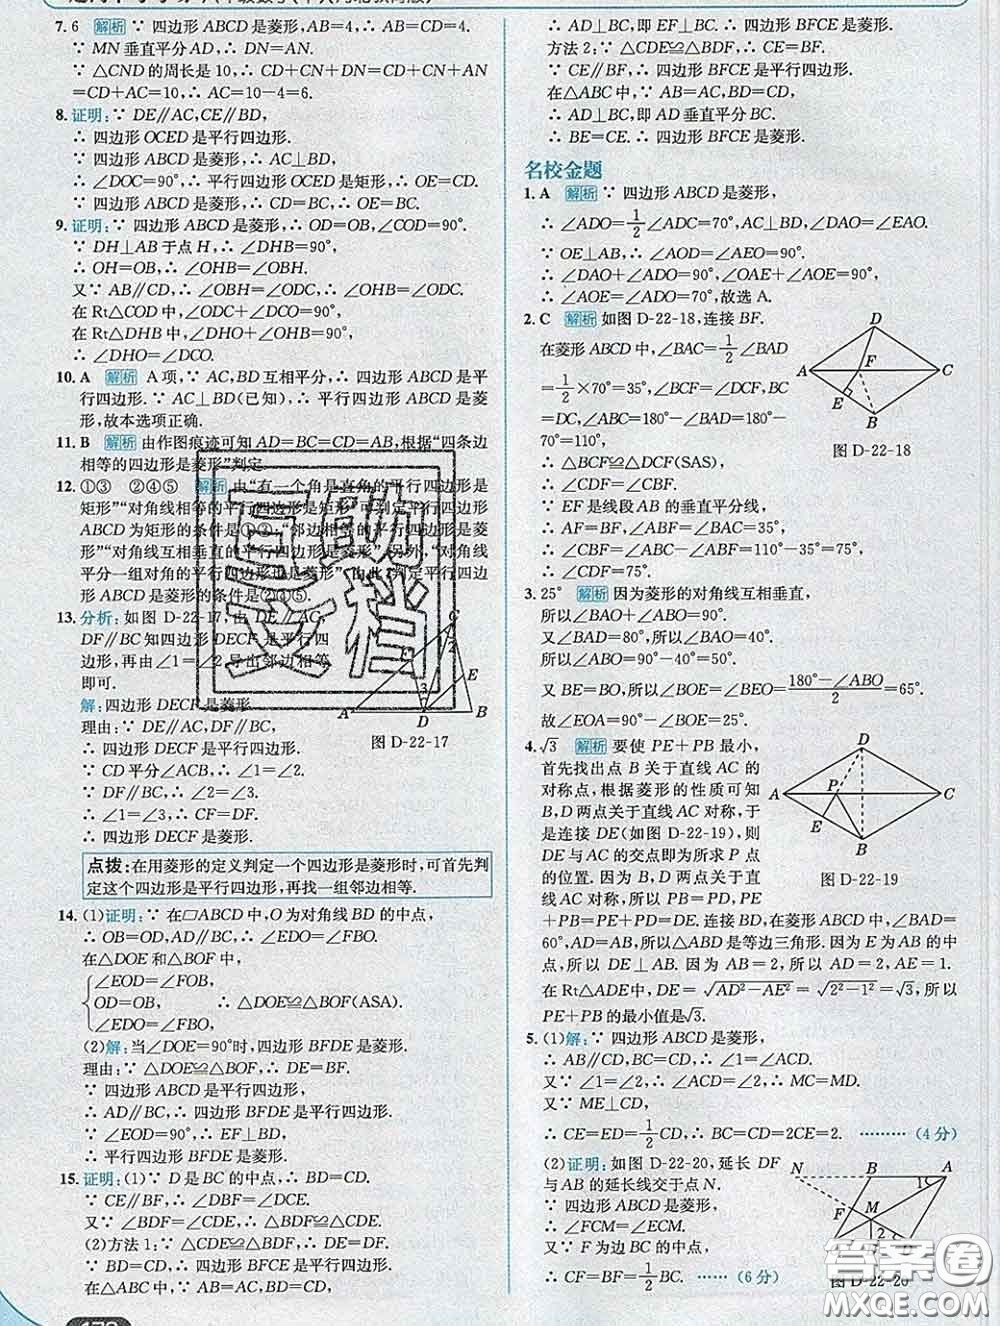 7. 6 解析 ∵ 四边形 ABCD 是菱形,AB=4,∴ AB=CD=4.
∵ MN 垂直平分 AD,∴ DN=AN.
∵ △CND 的周长是 10,∴ CD+CN+DN=CD+CN+AN=
CD+AC=10,∴ AC=10-4=6.
8. 证明:∵ DE∥AC,CE∥BD,
∴ 四边形 OCED 是平行四边形.
∵ 四边形 ABCD 是菱形,∴ AC⊥BD,
∴ ∠DOC=90°,∴ 平行四边形 OCED 是矩形,∴ OE=CD.
∵ 四边形 ABCD 是菱形,∴ CD=BC,∴ OE=BC.
9. 证明:∵ 四边形 ABCD 是菱形,∴ OD=OB,∠COD=90°.
∵ DH⊥AB 于点 H,∴ ∠DHB=90°.
∴ OH=OB,∴ ∠OHB=∠OBH.
又∵ AB∥CD,∴ ∠OBH=∠ODC,∴ ∠OHB=∠ODC.
在 Rt△COD 中,∠ODC+∠DCO=90°,
在 Rt△DHB 中,∠DHO+∠OHB=90°,
∴ ∠DHO=∠DCO.
10. A 解析 A 项,∵ AC,BD 互相平分,∴ 四边形 ABCD 是平
行四边形.∵ AC⊥BD(已知),∴ 平行四边形 ABCD 是菱
形,故本选项正确.
11. B 解析 由作图痕迹可知 AD=BC=CD=AB,根据“四条边
相等的四边形是菱形”判定.
12. ①③ ②④⑤ 解析 由“有一个角是直角的平行四边形是
矩形”“对角线相等的平行四边形是矩形”可判定平行四边形
ABCD 为矩形的条件是①③;“邻边相等的平行四边形是菱
形”“对角线互相垂直的平行四边形是菱形”,另外,“对角线
平分一组对角的平行四边形也是菱形”,由此,判定平行四边
形 ABCD 是菱形的条件是②④⑤.
13. 分析:如图 D-22-17,由 DE∥AC,
DF∥BC 知四边形 DECF 是平行四
边形,再由 ∠1=∠2 导出邻边相等
即可.
解:四边形 DECF 是菱形.
理由:∵ DE∥AC,DF∥BC,
∴ 四边形 DECF 是平行四边形.
∵ CD 平分∠ACB,∴ ∠1=∠2.
∵ DF∥BC,∴ ∠2=∠3.
∴ ∠1=∠3,∴ CF=DF.
∴ 四边形 DECF 是菱形.
C
2
E
3
A
D
B
图 D-22-17
点拨:在用菱形的定义判定一个四边形是菱形时,可首先判
定这个四边形是平行四边形,再找一组邻边相等.
14. (1)证明:∵ 在▱ABCD 中,O 为对角线 BD 的中点,
∴ OB=OD,AD∥BC,∴ ∠EDO=∠FBO.
在△DOE 和△BOF 中,
∠EOD=∠FOB,
OD=OB, ∴ △DOE≌△BOF(ASA).
∠EDO=∠FBO,
(2)解:当∠DOE=90°时,四边形 BFDE 是菱形.
理由:∵ △DOE≌△BOF,∴ DE=BF.
∵ 四边形 ABCD 是平行四边形,
∴ AD∥BC,∴ 四边形 BFDE 是平行四边形.
∵ ∠EOD=90°,∴ EF⊥BD,
∴ 平行四边形 BFDE 是菱形.
15. 证明:(1)∵ D 是 BC 的中点,∴ BD=CD.
∵ CE∥BF,∴ ∠DBF=∠DCE.
又∵ ∠BDF=∠CDE,∴ △BDF≌△CDE.
(2)方法 1:∵ △CDE≌△BDF,∴ DE=DF.
∵ BD=CD,∴ 四边形 BFCE 是平行四边形.
在△ABC 中,∵ AB=AC,BD=CD,
∴ AD⊥BC,即 EF⊥BC,∴ 四边形 BFCE 是菱形.
方法 2:∵ △CDE≌△BDF,∴ CE=BF.
∵ CE∥BF,∴ 四边形 BFCE 是平行四边形.
在△ABC 中,∵ AB=AC,BD=CD,
∴ AD⊥BC,即 AD 垂直平分 BC,
∴ BE=CE.∴ 四边形 BFCE 是菱形.
名校金题
1. A 解析 ∵ 四边形 ABCD 是菱形,
∴ ∠ADO=1/2∠ADC=70°,AC⊥BD,∠DAO=∠EAO.
∵ OE⊥AB,∴ ∠AOD=∠AEO=90°.
∴ ∠DAO+∠ADO=90°,∠OAE+∠AOE=90°,
∴ ∠AOE=∠ADO=70°,故选 A.
2. C 解析 如图 D-22-18,连接 BF.
在菱形 ABCD 中,∠BAC=1/2∠BAD
=1/2×70°=35°,∠BCF=∠DCF,BC
=DC,∠ABC=180°-∠BAD=180°
-70°=110°,
∴ △BCF≌△DCF(SAS),
∴ ∠CBF=∠CDF.
∵ EF 是线段 AB 的垂直平分线,
∴ AF=BF,∠ABF=∠BAC=35°,
∴ ∠CBF=∠ABC-∠ABF=110°-35°=75°,
∴ ∠CDF=75°.
D
F
A
C
E
B
图 D-22-18
3. 25° 解析 因为菱形的对角线互相垂直,
所以∠BAO+∠ABO=90°.
又∠BAD=80°,所以∠BAO=40°.
所以∠ABO=90°-40°=50°.
又 BE=BO,所以∠BOE=(180°-∠ABO)/2=65°.
故∠EOA=90°-∠BOE=25°.
4. √3 解析 要使 PE+PB 最小,
首先找出点 B 关于直线 AC 的
对称点,根据菱形的性质可知
B,D 两点关于直线 AC 对称,于
是连接 DE(如图 D-22-19),则
DE 与 AC 的交点即为所求 P 点
的位置.因为 PB=PD,所以 PE
+PB=PE+PD=DE.连接 BD,在菱形 ABCD 中,∠BAD=
60°,AD=AB,所以△ABD 是等边三角形.因为 E 为 AB 的中
点,所以 DE⊥AB.因为 AB=2,所以 AD=2,AE=1.
在 Rt△ADE 中,DE=√(AD²-AE²)=√(2²-1²)=√3,所以
PE+PB 的最小值是√3.
D
P
A
C
E
B
图 D-22-19
5. (1)解:∵ 四边形 ABCD 是菱形,
∴ AB∥CD,BC=CD,∴ ∠1=∠ACD.
又∵ ∠1=∠2,∴ ∠ACD=∠2,∴ MC=MD.
又∵ ME⊥CD,
∴ CE=ED=1/2CD,∴ BC=CD=2CE=2. ………(4 分)
(2)证明:如图 D-22-20,延长 DF
与 AB 的延长线交于点 N.
∵ 四边形 ABCD 是菱形,
∴ ∠FCM=∠ECM.
又∵ F 为边 BC 的中点,
∴ CF=BF=1/2BC. ……(6 分)
N
B
A
1
F
M
2
图 D-22-20
答案圈
MXQE.COM